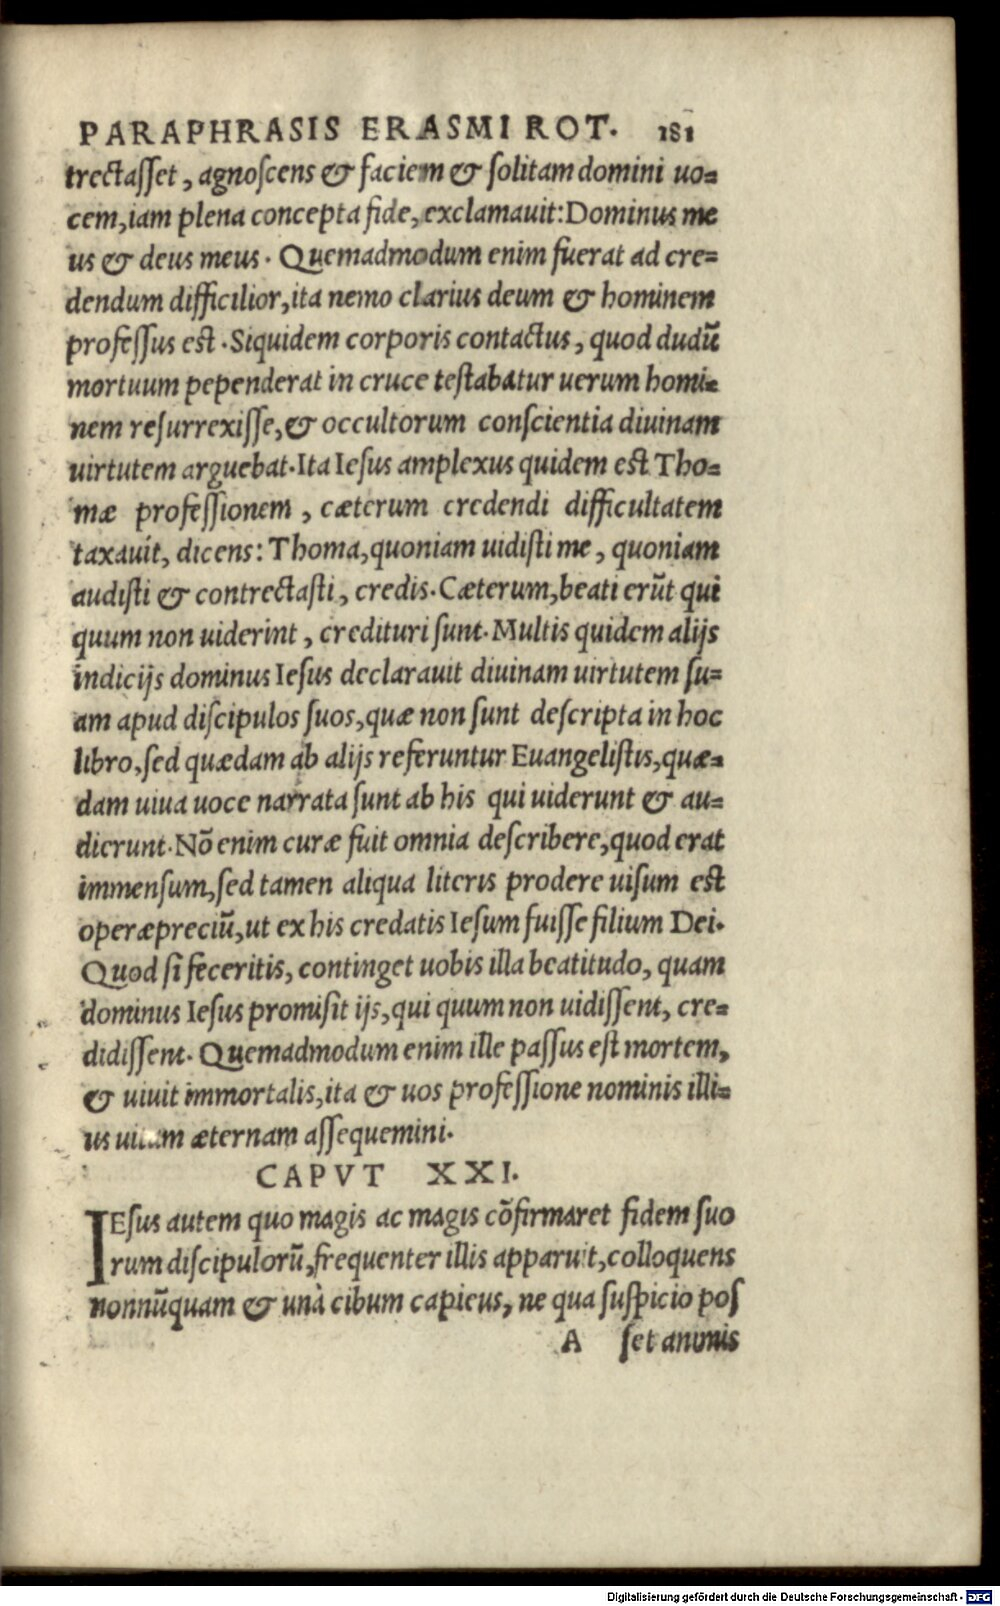 PARAPHRASIS ERASMI ROT. 181
trectasset, agnoscens & faciem & solitam domini uo=
cem, iam plena concepta fide, exclamauit: Dominus me
us & deus meus. Quemadmodum enim fuerat ad cre=
dendum difficilior, ita nemo clarius deum & hominem
professus est. Siquidem corporis contactus, quod dudũ
mortuum pependerat in cruce testabatur uerum homi=
nem resurrexisse, & occultorum conscientia diuinam
uirtutem arguebat. Ita Iesus amplexus quidem est Tho=
mæ professionem, cæterum credendi difficultatem
taxauit, dicens: Thoma, quoniam uidisti me, quoniam
audisti & contrectasti, credis. Cæterum, beati erũt qui
quum non uiderint, credituri sunt. Multis quidem alijs
indicijs dominus Iesus declarauit diuinam uirtutem su=
am apud discipulos suos, quæ non sunt descripta in hoc
libro, sed quædam ab alijs referuntur Euangelistis, quæ=
dam uiua uoce narrata sunt ab his qui uiderunt & au=
dierunt. Nõ enim curæ fuit omnia describere, quod erat
immensum, sed tamen aliqua literis prodere uisum est
operæpreciũ, ut ex his credatis Iesum fuisse filium Dei.
Quod si feceritis, continget uobis illa beatitudo, quam
dominus Iesus promisit ijs, qui quum non uidissent, cre=
didissent. Quemadmodum enim ille passus est mortem,
& uiuit immortalis, ita & uos professione nominis illi=
us uitam æternam assequemini.
CAPVT XXI.
IEsus autem quo magis ac magis cõfirmaret fidem suo
rum discipulorũ, frequenter illis apparuit, colloquens
nonnũquam & unà cibum capiens, ne qua suspicio pos
A set animis
Digitalisierung gefördert durch die Deutsche Forschungsgemeinschaft - DFG